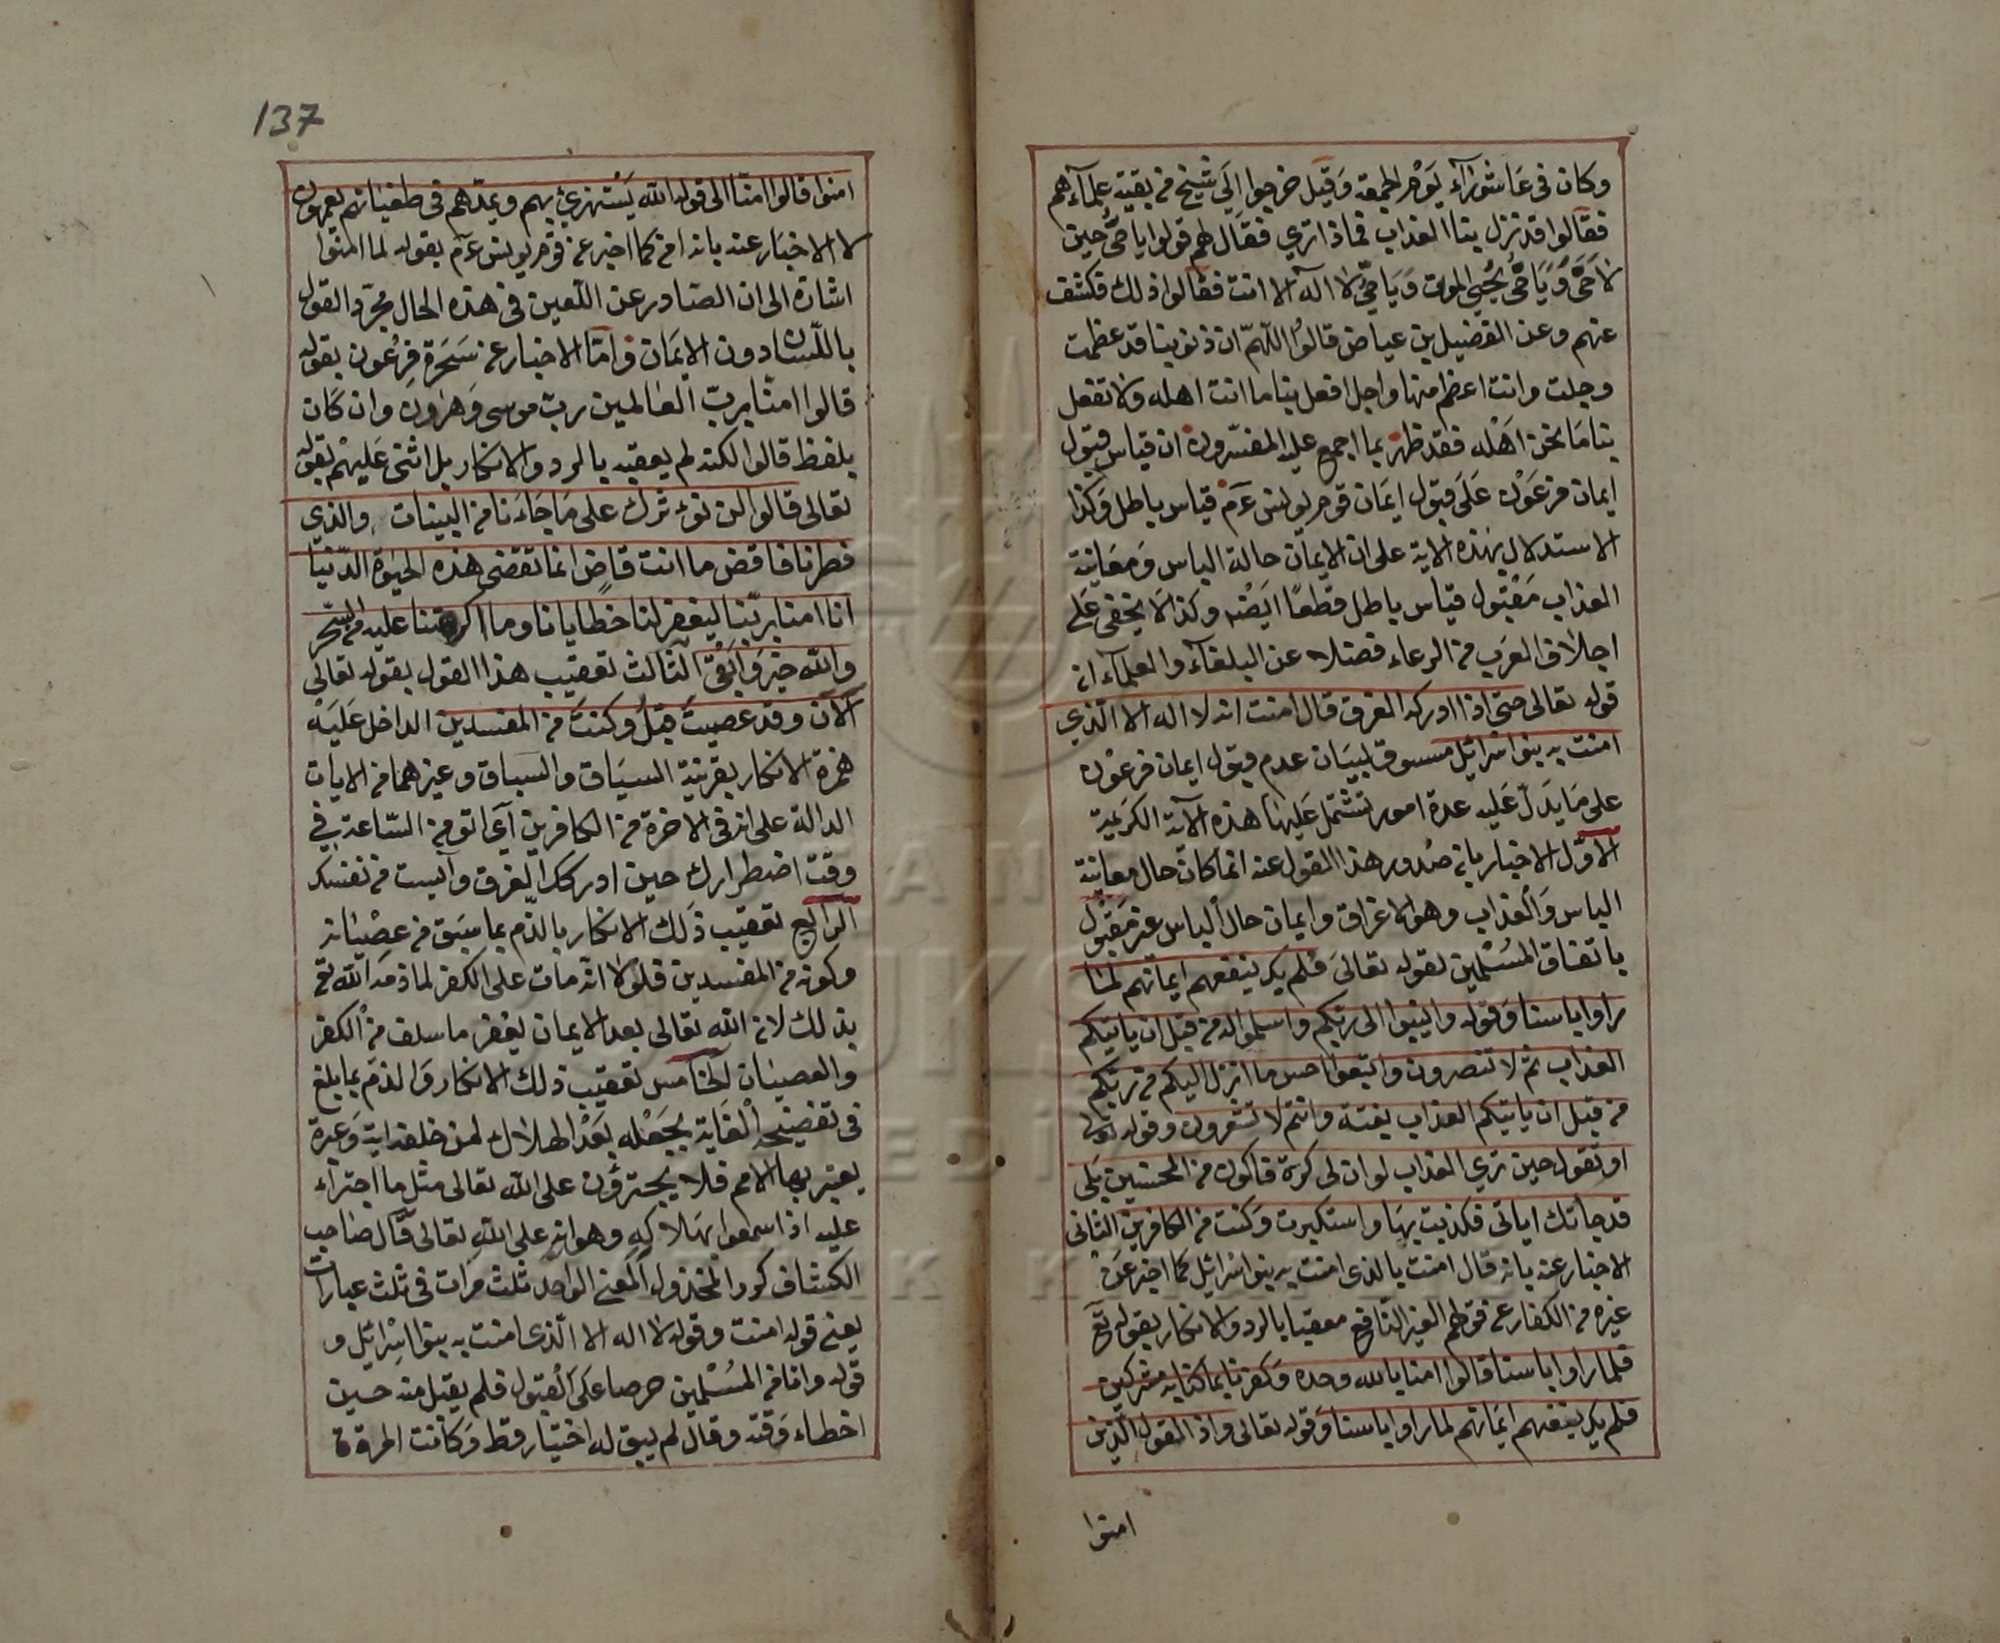 وكان فى عاشوراء يوم الجمعة وقيل خرجوا الى شيخ من بقية علمآءهم
فقالوا قد نزل بنا العذاب فماذا ترى فقال لهم قولوا يا حىّ حين
لا حىّ ويا حىّ يحيى الموتى ويا حىّ لا اله الا انت فقالوا ذلك فكشف
عنهم وعن الفضيل بن عياض قالوا اللّهمّ ان ذنوبنا قد عظمت
وجلت وانت اعظم منها واجل افعل بنا ما انت اهله ولا تفعل
بنا ما نحن اهله فقد ظهر بما اجمع عليه المفسّرون ان قياس قبول
ايمان فرعون على قبول ايمان قوم يونس عم قياس باطل وكذا
الاستدلال بهذه الاية على ان الايمان حالة الباس ومعاينة
العذاب مقبول قياس باطل قطعًا ايضه وكذا لا يخفى على
اجلاف العرب من الرعاء فضلا عن البلغآء والعلمآء ان
قوله تعالى حتى اذا ادركه الغرق قال امنت انه لا اله الا الّذى
امنت به بنوا اسرائيل مسوق لبيان عدم قبول ايمان فرعون
على ما يدلّ عليه عدة امور تشتمل عليها هذه الآية الكريمة
الاوّل الاخبار بان صدور هذا القول عنه انما كان حال معاينة
الباس والعذاب وهو الاغراق وايمان حال الباس غير مقبول
باتفاق المسلمين لقوله تعالى فلم يك ينفعهم ايمانهم لما
راوا باسنا وقوله وانيبوا الى ربكم واسلموا له من قبل ان ياتيكم
العذاب ثم لا تنصرون واتبعوا احسن ما انزل اليكم من ربكم
من قبل ان ياتيكم العذاب بغتة وانتم لا تشعرون وقوله تعالى
او تقول حين ترى العذاب لو ان لى كرة فاكون من المحسنين بلى
قد جاتك اياتى فكذبت بها واستكبرت وكنت من الكافرين الثانى
الاخبار عنه بانه قال امنت بالذى امنت به بنوا اسرائيل كما اخبر عن
غيره من الكفار عن قولهم الغير النافع معقبا بالرد والانكار بقوله تع
فلما راوا باسنا قالوا امنا بالله وحده وكفرنا بما كنا به مشركين
فلم يك ينفعهم ايمانهم لما راوا باسنا وقوله تعالى واذا لقوا الّذين
امنوا
137
امنوا قالوا امنّا الى قوله الله يستهزئ بهم ويمدّهم فى طغيانهم يعمهون
لا الاخبار عنه بانه امن كما اخبر عن قوم يونس عم بقوله لما امنوا
اشارة الى ان الصادر عن اللّعين فى هذه الحال مجرّد القول
باللّسان دون الايمان وامّا الاخبار عن سحرة فرعون بقوله
قالوا امنّا بربّ العالمين ربّ موسى وهرون وان كان
بلفظ قالوا لكنه لم يعقبه بالرد والانكار بل اثنى عليهم بقوله
تعالى قالوا لن نؤثرك على ما جاءنا من البينات والذى
فطرنا فاقض ما انت قاض انما تقضى هذه الحيوة الدّنيا
انا امنا بربّنا ليغفر لنا خطايانا وما اكرهتنا عليه من السّحر
والله خير وابقى الثالث تعقيب هذا القول بقوله تعالى
الآن وقد عصيت قبل وكنت من المفسدين الداخل عليه
همزة الانكار بقرينة السياق والسباق وغيرهما من الايات
الدالة على انه فى الاخرة من الكافرين اى اتومن السّاعة فى
وقت اضطرارك حين ادركك الغرق وآيست من نفسك
الرابع تعقيب ذلك الانكار بالذّم بما سبق من عصيانه
وكونه من المفسدين فلولا انه مات على الكفر لما ذمه الله تع
بذلك لان الله تعالى بعد الايمان يغفر ما سلف من الكفر
والعصيان الخامس تعقيب ذلك الانكار والذّم بما بلغ
فى تفضيحه الغاية بجعله بعد الهلاك لمن خلفه اية وعبرة
يعتبر بها الامم فلا يجترؤن على الله تعالى مثل ما اجتراء
عليه اذا سمعوا بهلاكه وهوانه على الله تعالى قال صاحب
الكشاف كرر المخذول المعنى الواحد ثلث مرات فى ثلث عبارات
يعنى قوله امنت وقوله لا اله الا الّذى امنت به بنوا اسرائيل و
قوله وانا من المسلمين حرصا على القبول فلم يقبل منه حين
اخطاء وقته وقال لم يبق له اختيار قط وكانت المرة